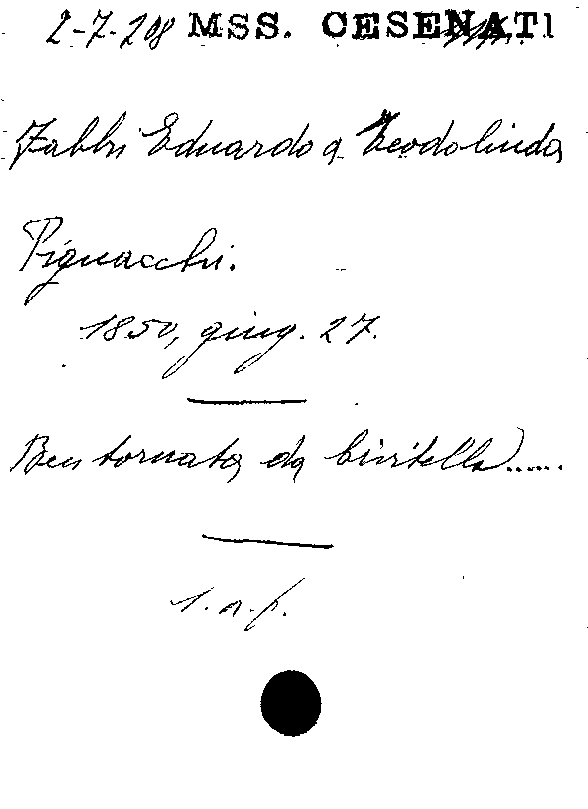 2-7-208 MSS. CESENATI
Fabbri Eduardo a Teodolinda
Pignacchi.
1850, giug. 27.
Ben tornata da Civitella.....
l. a. f.